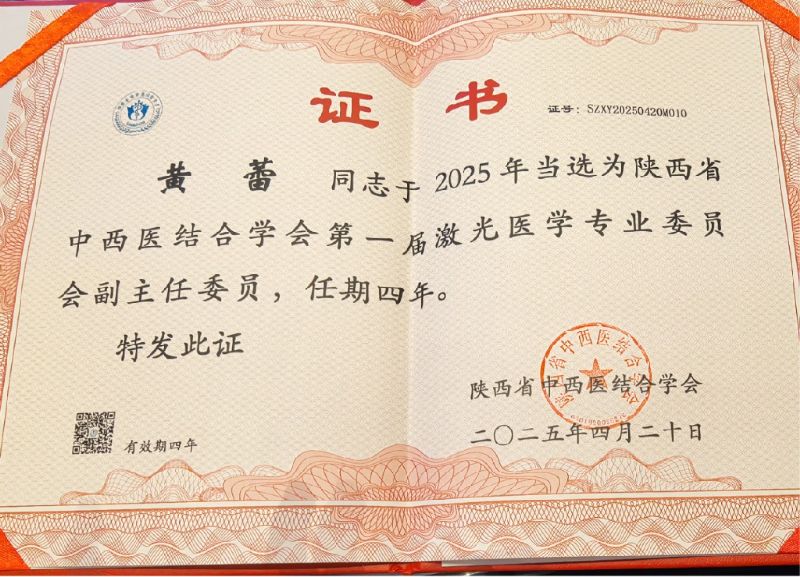 证书
证号：SZXY20250420M010
黄蕾 同志于2025年当选为陕西省
中西医结合学会第一届激光医学专业委员
会副主任委员，任期四年。
特发此证
陕西省中西医结合学会
陕西省中西医结合学会
二〇二五年四月二十日
有效期四年